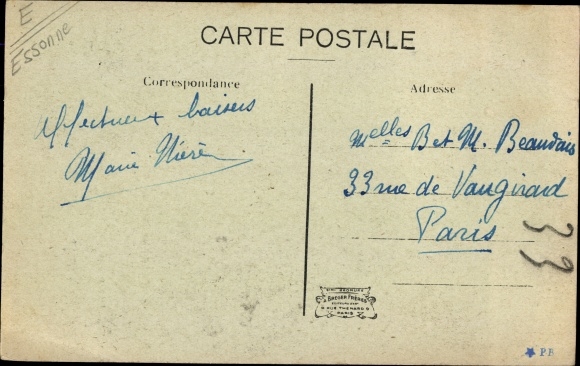 E
Essonne
CARTE POSTALE
Correspondance
Adresse
Affectueux baisers
Marie
Melles B et M. Beaudais
33 rue de Vaugirard
Paris
33
BREGER FRÈRES
9 RUE THÉNARD 9
PARIS